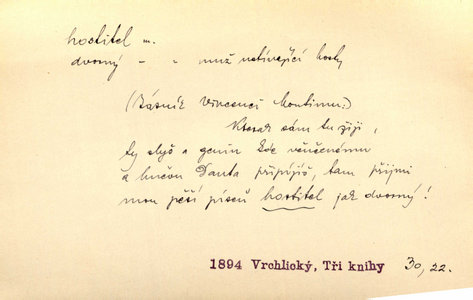 hostitel m.
dvorný - " muž uctívající hosty
(Básník Vincenci Montimu:)
Kterak sám tu žiji,
ty slyš a geniu kde věnčenému
a Danta připíjíš, tam přijmi
mou píseň hostitel jak dvorný!
1894 Vrchlický, Tři knihy 30, 22.